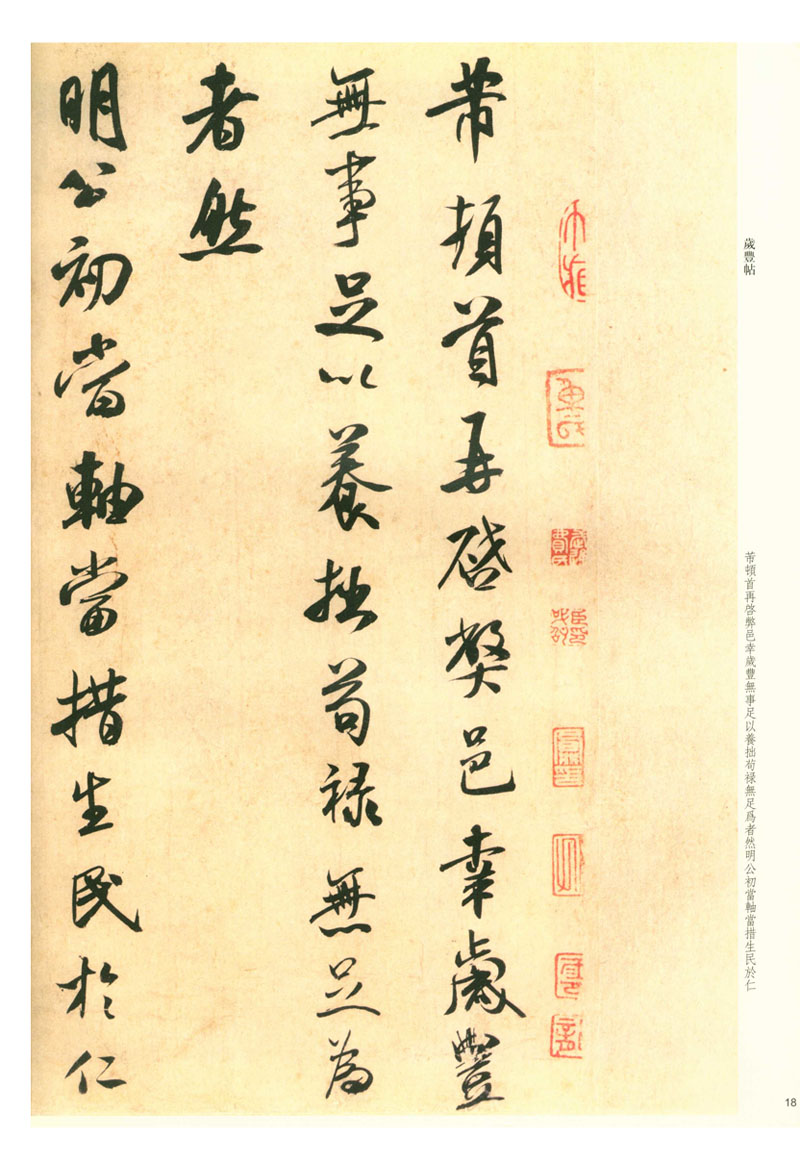 歲豐帖
芾頓首再啓弊邑幸歲豐無事足以養拙苟祿無足爲者然明公初當軸當措生民於仁
芾頓首再啓弊邑幸歲豐
無事足以養拙苟祿無足為
者然
明公初當軸當措生民於仁
18